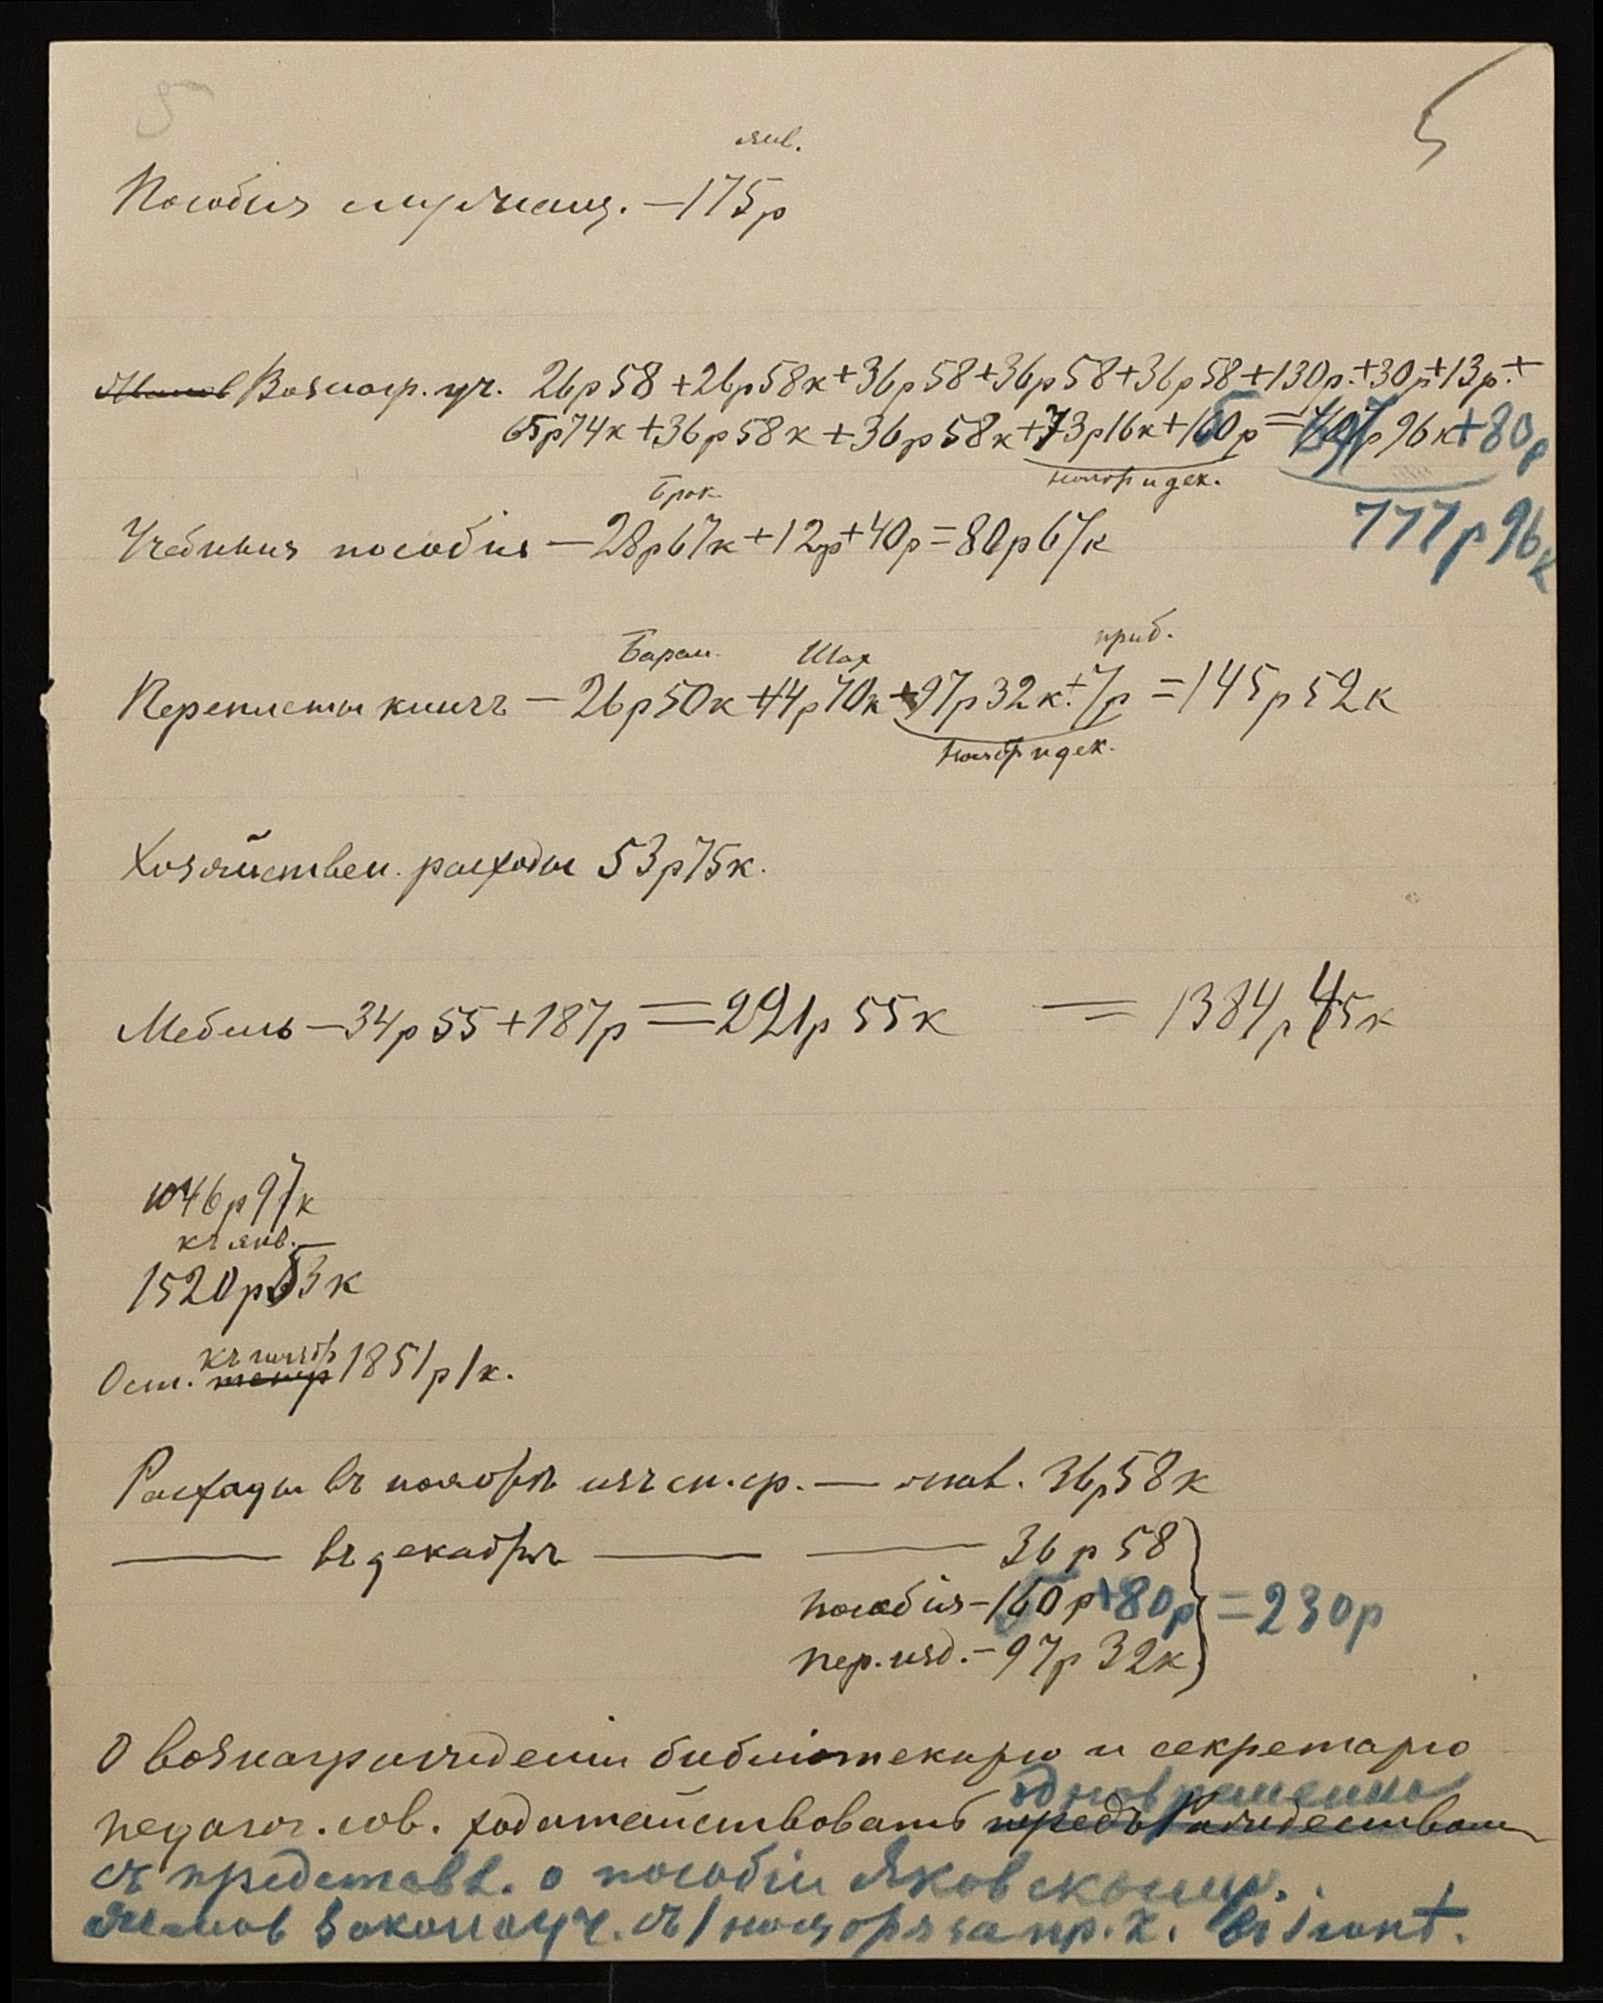 5
5
янв.
Пособия служащ. — 175 р
Жалов Вознагр. уч. 26 р 58 + 26 р 58 к + 36 р 58 + 36 р 58 + 36 р 58 + 130 р. + 30 р + 13 р. +
65 р 74 к + 36 р 58 к + 36 р 58 к + 73 р 16 к + 150 р = р 96 к + 80 р
ноябр и дек.
777 р 96 к
Брок.
Учебныя пособія — 28 р 67 к + 12 р + 40 р = 80 р 67 к
Баран. Шах приб.
Переплеты книгъ — 26 р 50 к + 14 р 70 к + 97 р 32 к. + 7 р = 145 р 52 к
ноябр и дек.
Хозяйствен. расходы 53 р 75 к.
Мебель — 34 р 55 + 187 р = 221 р 55 к = 1384 р 45 к
1046 р 97 к
къ янв. —
1520 р 53 к
къ ноябр
Ост. 1851 р 1 к.
Расходы въ ноябрѣ изъ сп. ср. — 36 р 58 к
— въ декабрѣ — — 36 р 58
пособія — 150 р + 80 р = 230 р
пер. изд. — 97 р 32 к
О вознагражденіи библіотекарю и секретарю
одновременно
педагог. сов. ходатайствовать предъ
съ представл. о пособіи Яковскому.
законоуч. съ 1 ноября за пр. к.